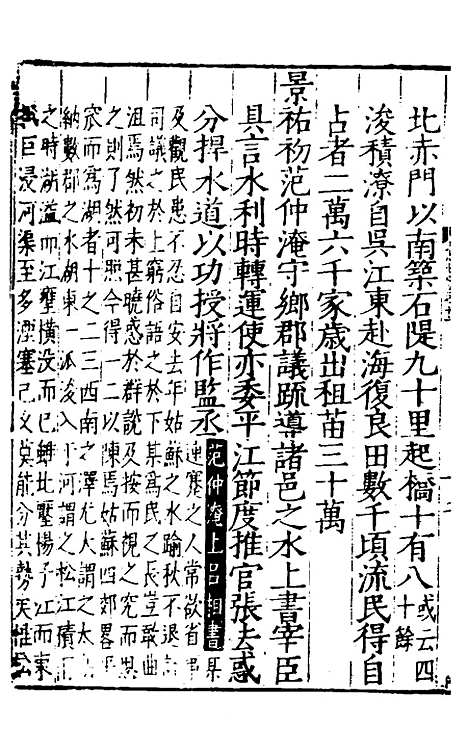 北赤門以南築石隄九十里起橋十有八或云四十餘
浚積潦自吳江東赴海復良田數千頃流民得自
占者二萬六千家歲出租苗三十萬
景祐初范仲淹守鄉郡議疏導諸邑之水上書宰臣
具言水利時轉運使亦委平江節度推官張去惑
分捍水道以功授將作監丞 范仲淹上呂相書
連蹇之人常欲省
及觀民患不忍自安去年姑蘇之水踰秋不退
司議之於上窮俗語之於下某為民之長豈敢曲
沮焉然初未甚曉惑於群說及按而視之究而
之則了然可照今得一二以陳焉姑蘇四郊畧
窊而為湖者十之二三西南之澤尤大謂之太
納數郡之水湖東一派浚入于河謂之松江積
之時湖溢而江壅橫沒而已雖北壓揚子江而東
巨浸河渠至多湮塞已久莫能分其勢矣惟